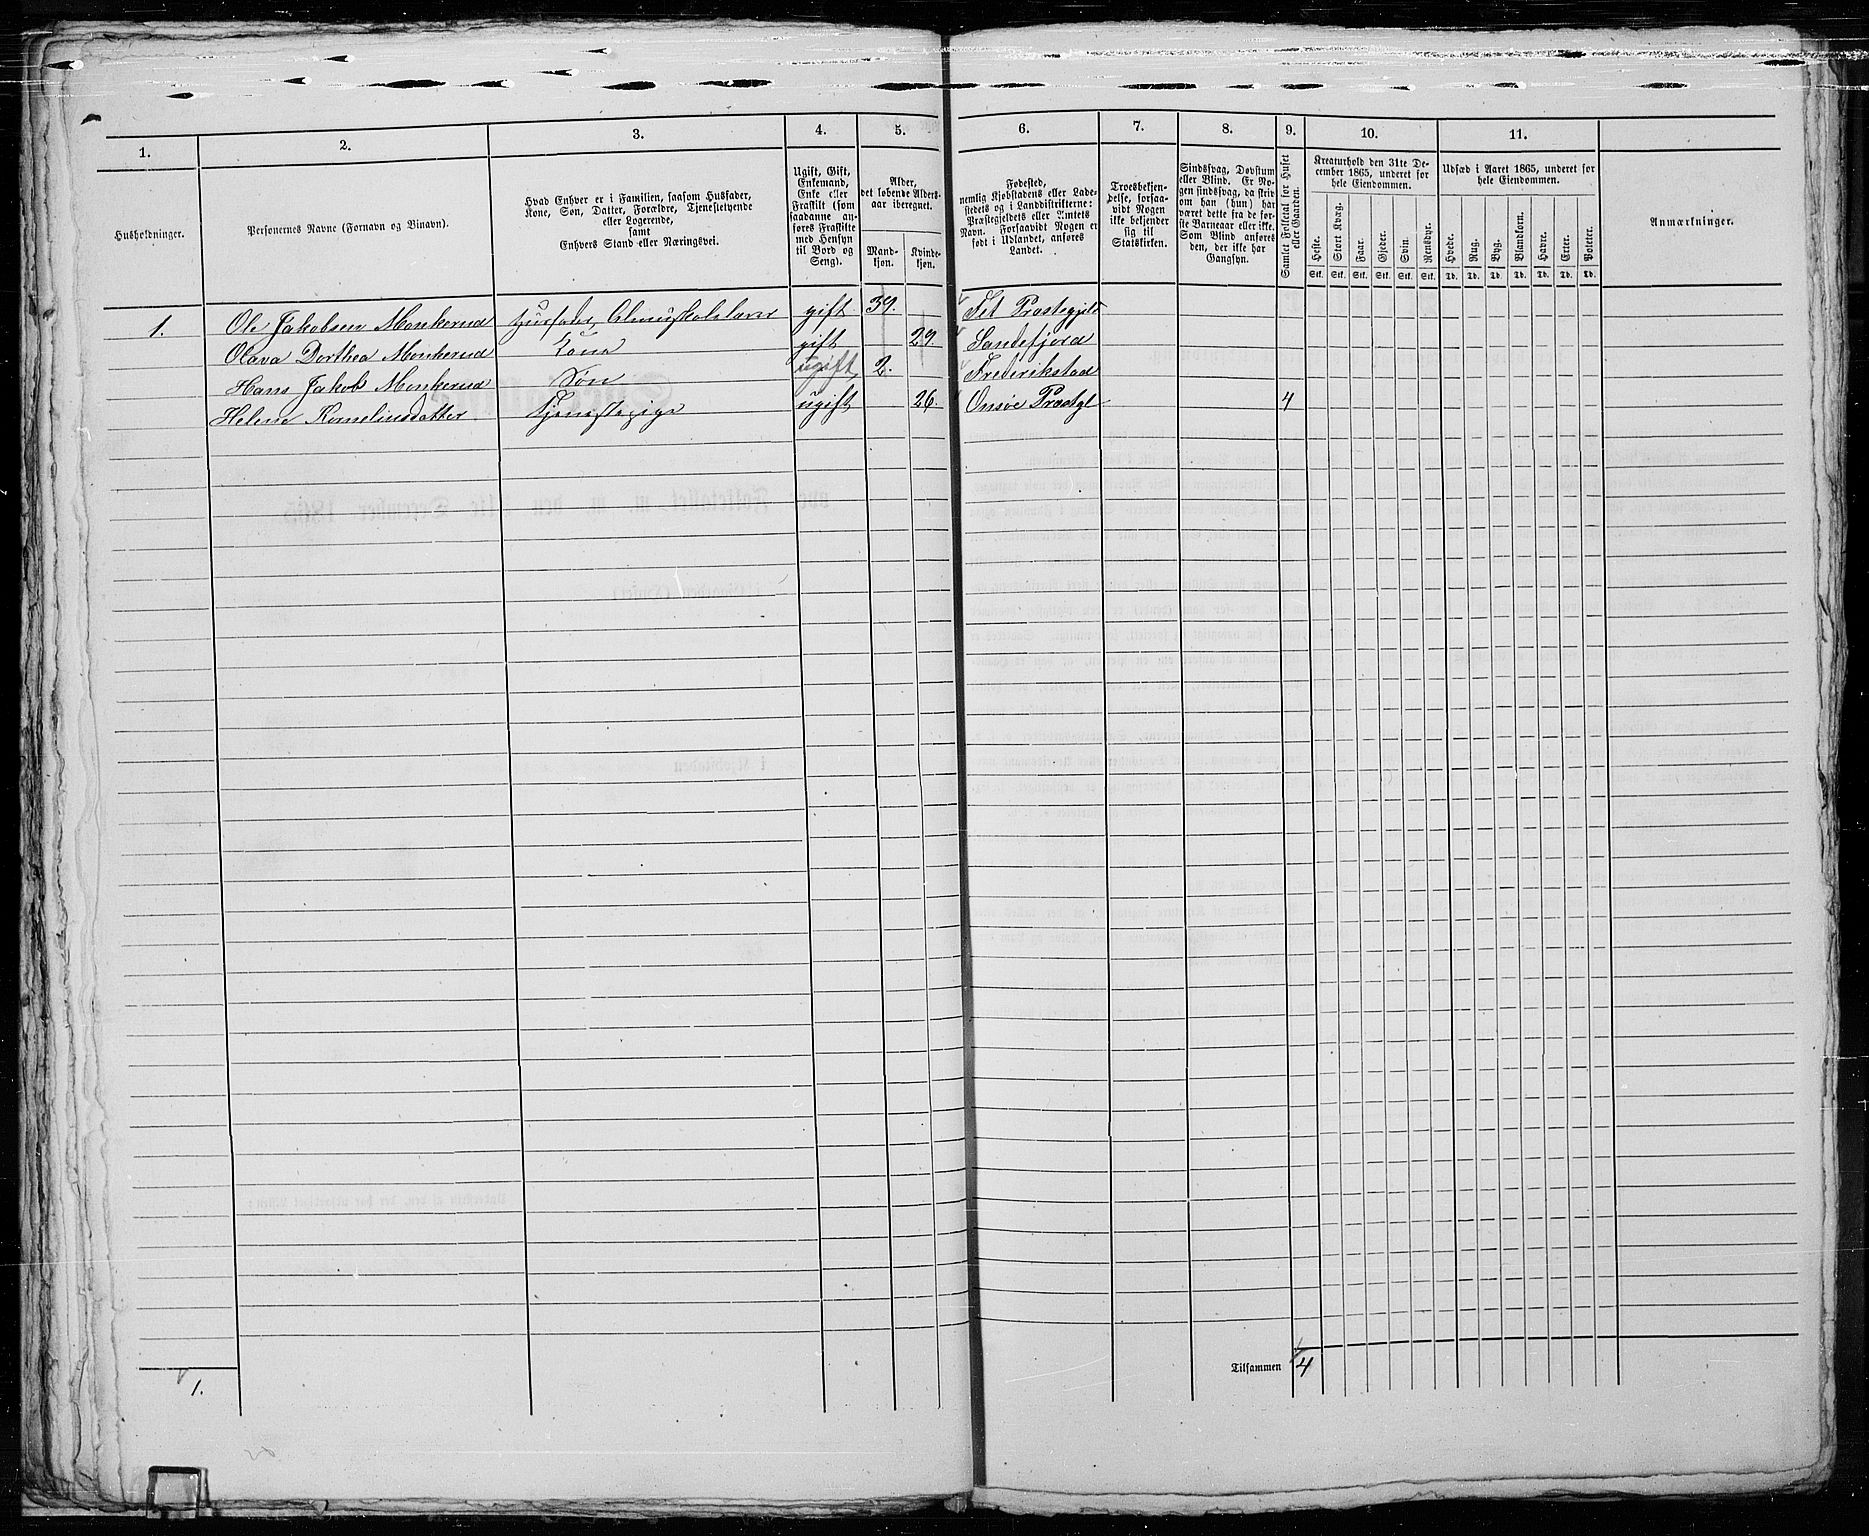 1. 2. 3. 4. 5. 6. 7. 8. 9. 10. 11.
Husholdninger.
Personernes Navne (Fornavn og Binavn).
Hvad Enhver er i Familien, saasom Husfader,
Kone, Søn, Datter, Forældre, Tjenestetyende
eller Logerende,
samt
Enhvers Stand eller Næringsvei.
Ugift, Gift,
Enkemand,
Enke eller
Fraskilt (som
saadanne an-
føres Fraskilte
med Hensyn
til Bord og
Seng).
Alder,
det løbende Alders-
aar iberegnet.
Mand-
kjøn.
Kvinde-
kjøn.
Fødested,
nemlig Kjøbstadens eller Lade-
stedets og i Landdistrikterne:
Præstegjeldets eller Amtets
Navn. Forsaavidt Nogen er
født i Udlandet, anføres
Landet.
Troesbekjen-
delse, forsaa-
vidt Nogen
ikke bekjender
sig til
Statskirken.
Sindssvag, Døvstum
eller Blind. Er No-
gen sindssvag, da skri-
ves om han (hun) har
været dette fra de før-
ste Barneaar eller ikke.
Som Blind anføres
den, der ikke har
Gangsyn.
Samlet Folketal for Huset
eller Gaarden.
Kreaturhold den 31te De-
cember 1865, underet for
hele Eiendommen.
Heste. Stort Kvæg. Faar. Gjeder. Svin. Rensdyr.
Stk. Stk. Stk. Stk. Stk. Stk.
Udsæd i Aaret 1865, underet for
hele Eiendommen.
Hvede. Rug. Byg. Blandkorn. Havre. Erter. Poteter.
Td. Td. Td. Td. Td. Td. Td.
Anmærkninger.
1. Ole Jakobsen Monkerud Husfader, Almuskolelærer gift 39. Fet Præstegjeld
Olava Dorthea Monkerud Kone gift 29. Sandefjord
Hans Jakob Monkerud Søn ugift 2. Frederikstad
Helene Kornelinsdatter Tjenestepige ugift 26. Onsøe Præstgl 4
Tilsammen 4
1.